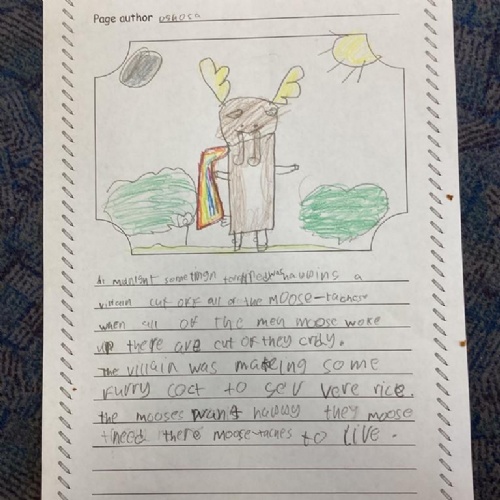 Page author oshosa
At midnight something terrified was happing a
villain cut off all of the moose-taches
when all of the men moose woke
up there are cut of they crdy.
The villain was making some
furry coct to sell vere rice.
the mooses wrant happy they moose
tneed there moose-taches to live.